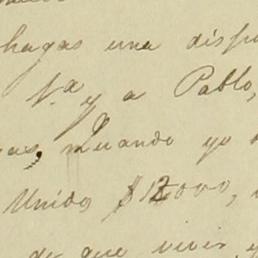 hagas una disp
y a Pablo,
as, cuando yo
Unido, $12000,
de que vivir, y